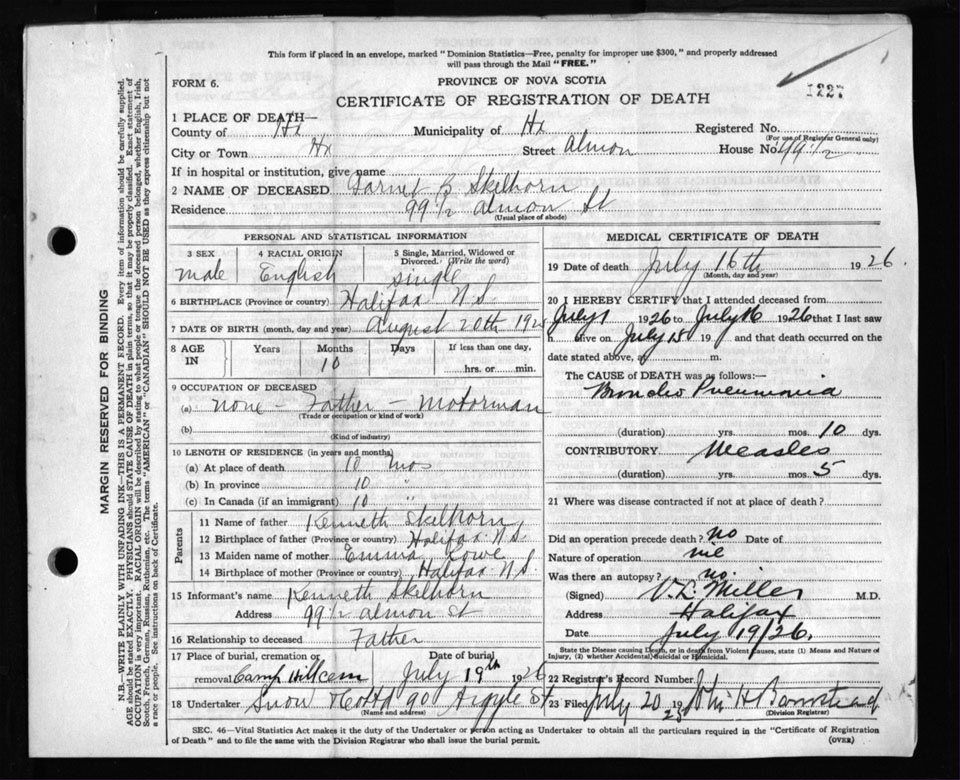 This form if placed in an envelope, marked "Dominion Statistics—Free, penalty for improper use $300," and properly addressed
will pass through the Mail "FREE."
FORM 6.
PROVINCE OF NOVA SCOTIA
1227
CERTIFICATE OF REGISTRATION OF DEATH
1 PLACE OF DEATH—
County of Hx Municipality of Hx Registered No.
(For use of Registrar General only)
City or Town Hx Street Almon House No. 99 1/2
If in hospital or institution, give name
2 NAME OF DECEASED Garnet B Skelhorn
Residence 99 1/2 Almon St
(Usual place of abode)
PERSONAL AND STATISTICAL INFORMATION
3 SEX 4 RACIAL ORIGIN 5 Single, Married, Widowed or Divorced. (Write the word)
male English single
6 BIRTHPLACE (Province or country) Halifax N.S.
7 DATE OF BIRTH (month, day and year) August 20th 192
8 AGE IN Years Months Days If less than one day,
10 hrs. or min.
9 OCCUPATION OF DECEASED
(a) none – Father – motorman
(Trade or occupation or kind of work)
(b)
(Kind of industry)
10 LENGTH OF RESIDENCE (in years and months)
(a) At place of death 10 mos
(b) In province 10 "
(c) In Canada (if an immigrant) 10 "
Parents
11 Name of father Kenneth Skelhorn
12 Birthplace of father (Province or country) Halifax N.S.
13 Maiden name of mother Emma Lowe
14 Birthplace of mother (Province or country) Halifax N.S.
15 Informant's name Kenneth Skelhorn
Address 99 1/2 Almon St
16 Relationship to deceased Father
17 Place of burial, cremation or removal Date of burial
Camp Hill cem July 19th 1926
18 Undertaker Snow & Co Ltd 90 Argyle St
(Name and address)
MEDICAL CERTIFICATE OF DEATH
19 Date of death July 16th 1926.
(Month, day and year)
20 I HEREBY CERTIFY that I attended deceased from
July 1 1926 to July 16 1926 that I last saw
h alive on July 15 19 and that death occurred on the
date stated above, at m.
The CAUSE OF DEATH was as follows:—
Broncho Pneumonia
(duration) yrs. mos. 10 dys.
CONTRIBUTORY Measles
(duration) yrs. mos. 5 dys.
21 Where was disease contracted if not at place of death?
Did an operation precede death? no Date of
Nature of operation nil
Was there an autopsy? no.
(Signed) V.L. Miller M.D.
Address Halifax
Date July 19/26.
State the Disease causing Death, or in death from Violent Causes, state (1) Means and Nature of
Injury, (2) whether Accidental, Suicidal or Homicidal.
22 Registrar's Record Number
23 Filed July 20 19 John H Barnstead
(Division Registrar)
SEC. 46—Vital Statistics Act makes it the duty of the Undertaker or person acting as Undertaker to obtain all the particulars required in the "Certificate of Registration
of Death" and to file the same with the Division Registrar who shall issue the burial permit.
(OVER)
MARGIN RESERVED FOR BINDING
N.B.—WRITE PLAINLY WITH UNFADING INK—THIS IS A PERMANENT RECORD. Every item of information should be carefully supplied.
AGE should be stated EXACTLY. PHYSICIANS should STATE CAUSE OF DEATH in plain terms, so that it may be properly classified. Exact statement of
OCCUPATION is very important. RACIAL ORIGIN will be described by stating to what people or tongue the deceased person belonged, whether English, Irish,
Scotch, French, German, Russian, Ruthenian, etc. The terms "AMERICAN" or "CANADIAN" SHOULD NOT BE USED as they express citizenship but not
a race or people. See instructions on back of Certificate.